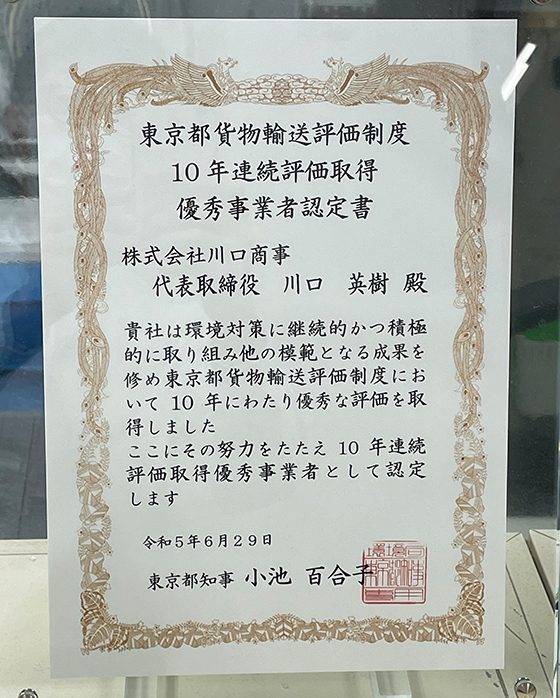 東京都貨物輸送評価制度
10年連続評価取得
優秀事業者認定書
株式会社川口商事
代表取締役 川口 英樹 殿
貴社は環境対策に継続的かつ積極
的に取り組み他の模範となる成果を
修め東京都貨物輸送評価制度にお
いて 10 年にわたり優秀な評価を取
得しました
ここにその努力をたたえ 10 年連続
評価取得優秀事業者として認定
します
令和5年6月29日
東京都知事 小池 百合子